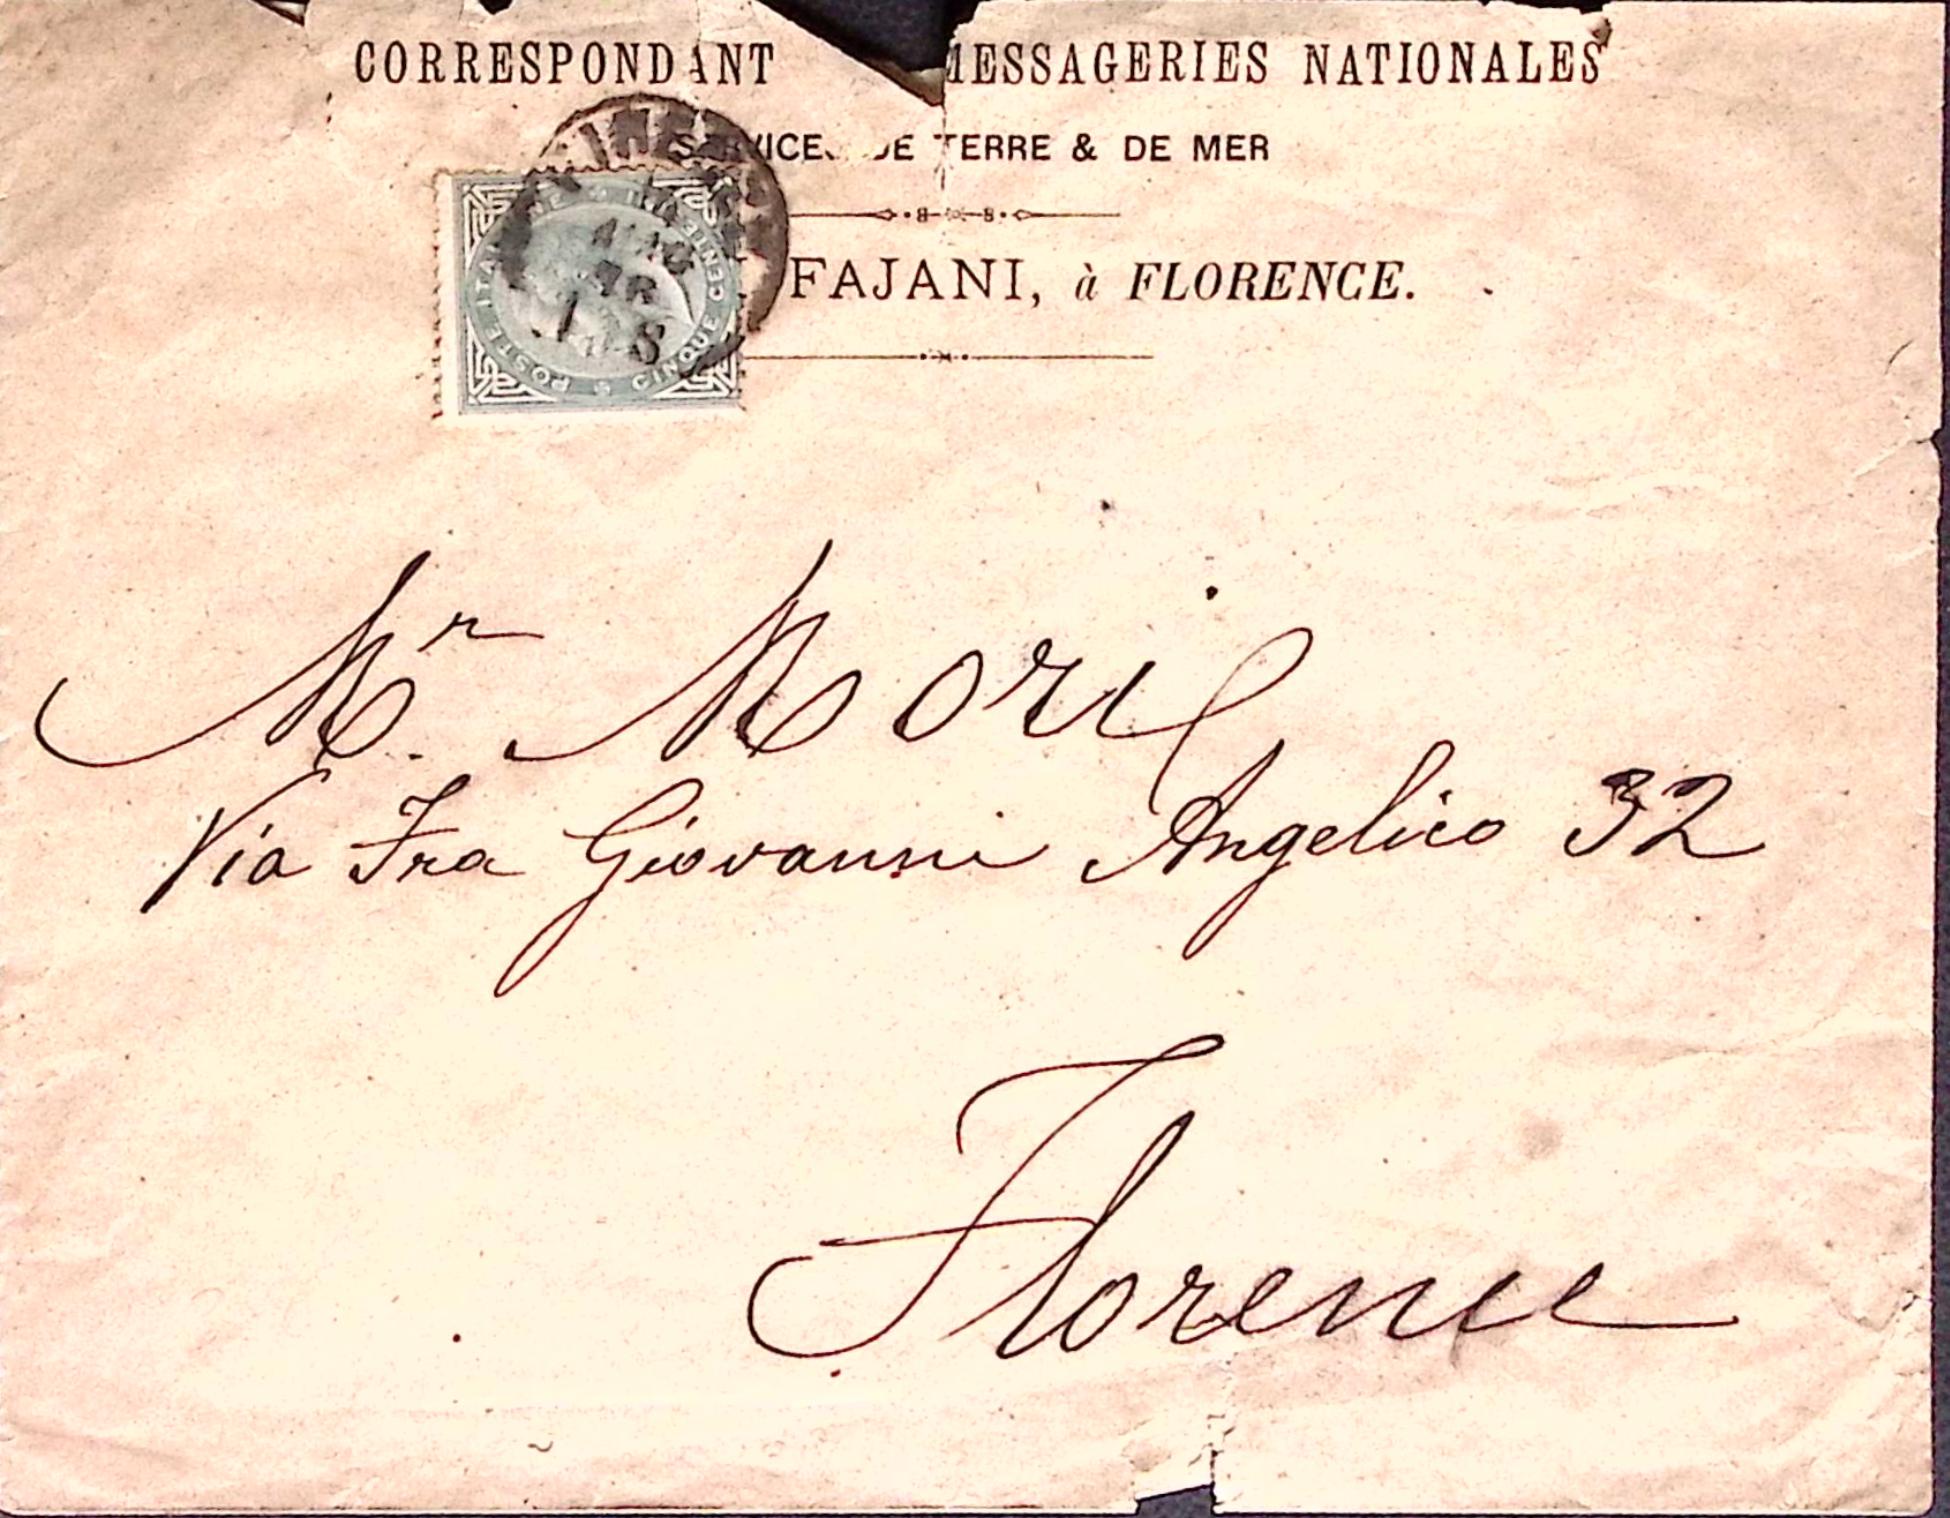 CORRESPONDANT MESSAGERIES NATIONALES
SERVICES DE TERRE & DE MER
FAJANI, à FLORENCE.
POSTE ITALIANE CENTESIMI CINQUE
Mr. Mori
Via Fra Giovanni Angelico 32
Florence